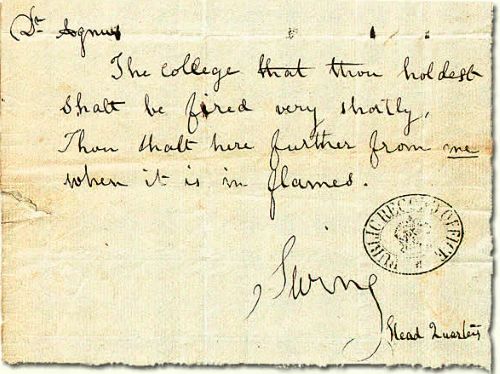 Dr Agnus
The college that thou holdest
Shalt be fired very shortly,
Thou shalt here further from me
when it is in flames.
PUBLIC RECORD OFFICE
Swing
Head Quarters